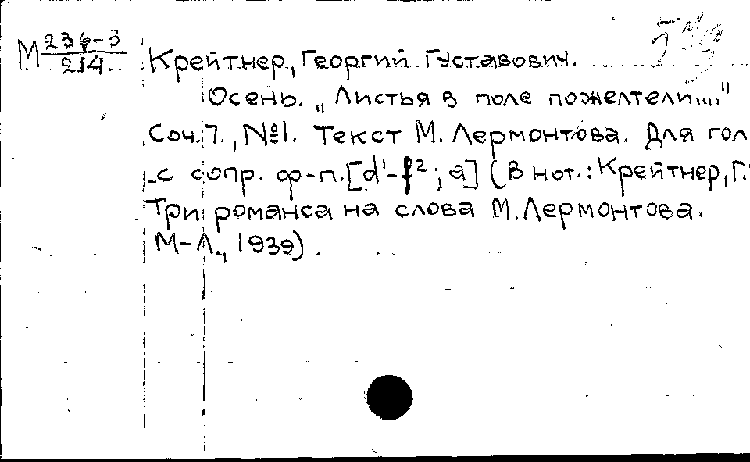 М 236-3/214 Крейтнер, Георгий Густавович.
Осень. „Листья в поле пожелтели..."
Соч. 7., №1. Текст М. Лермонтова. Для гол
с сопр. ф-п. [d¹-f²; a] (В нот.: Крейтнер, Г.
Три романса на слова М. Лермонтова.
М-Л., 1939).